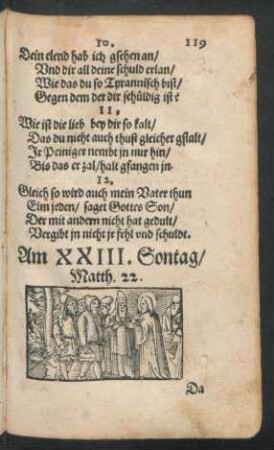 10. 119
Dein elend hab ich gsehen an/
Vnd dir all deine schuld erlan/
Wie das du so Tyrannisch bist/
Gegen dem der dir schüldig ist?
11.
Wie ist die lieb bey dir so kalt/
Das du nicht auch thust gleicher gstalt/
Jr Peiniger nembt jn nur hin/
Bis das er zal/halt gfangen jn.
12.
Gleich so wird auch mein Vater thun
Eim jeden/ saget Gottes Son/
Der mit andern nicht hat gedult/
Vergibt jn nicht jr fehl vnd schuldt.
Am XXIII. Sontag/
Matth. 22.
Da